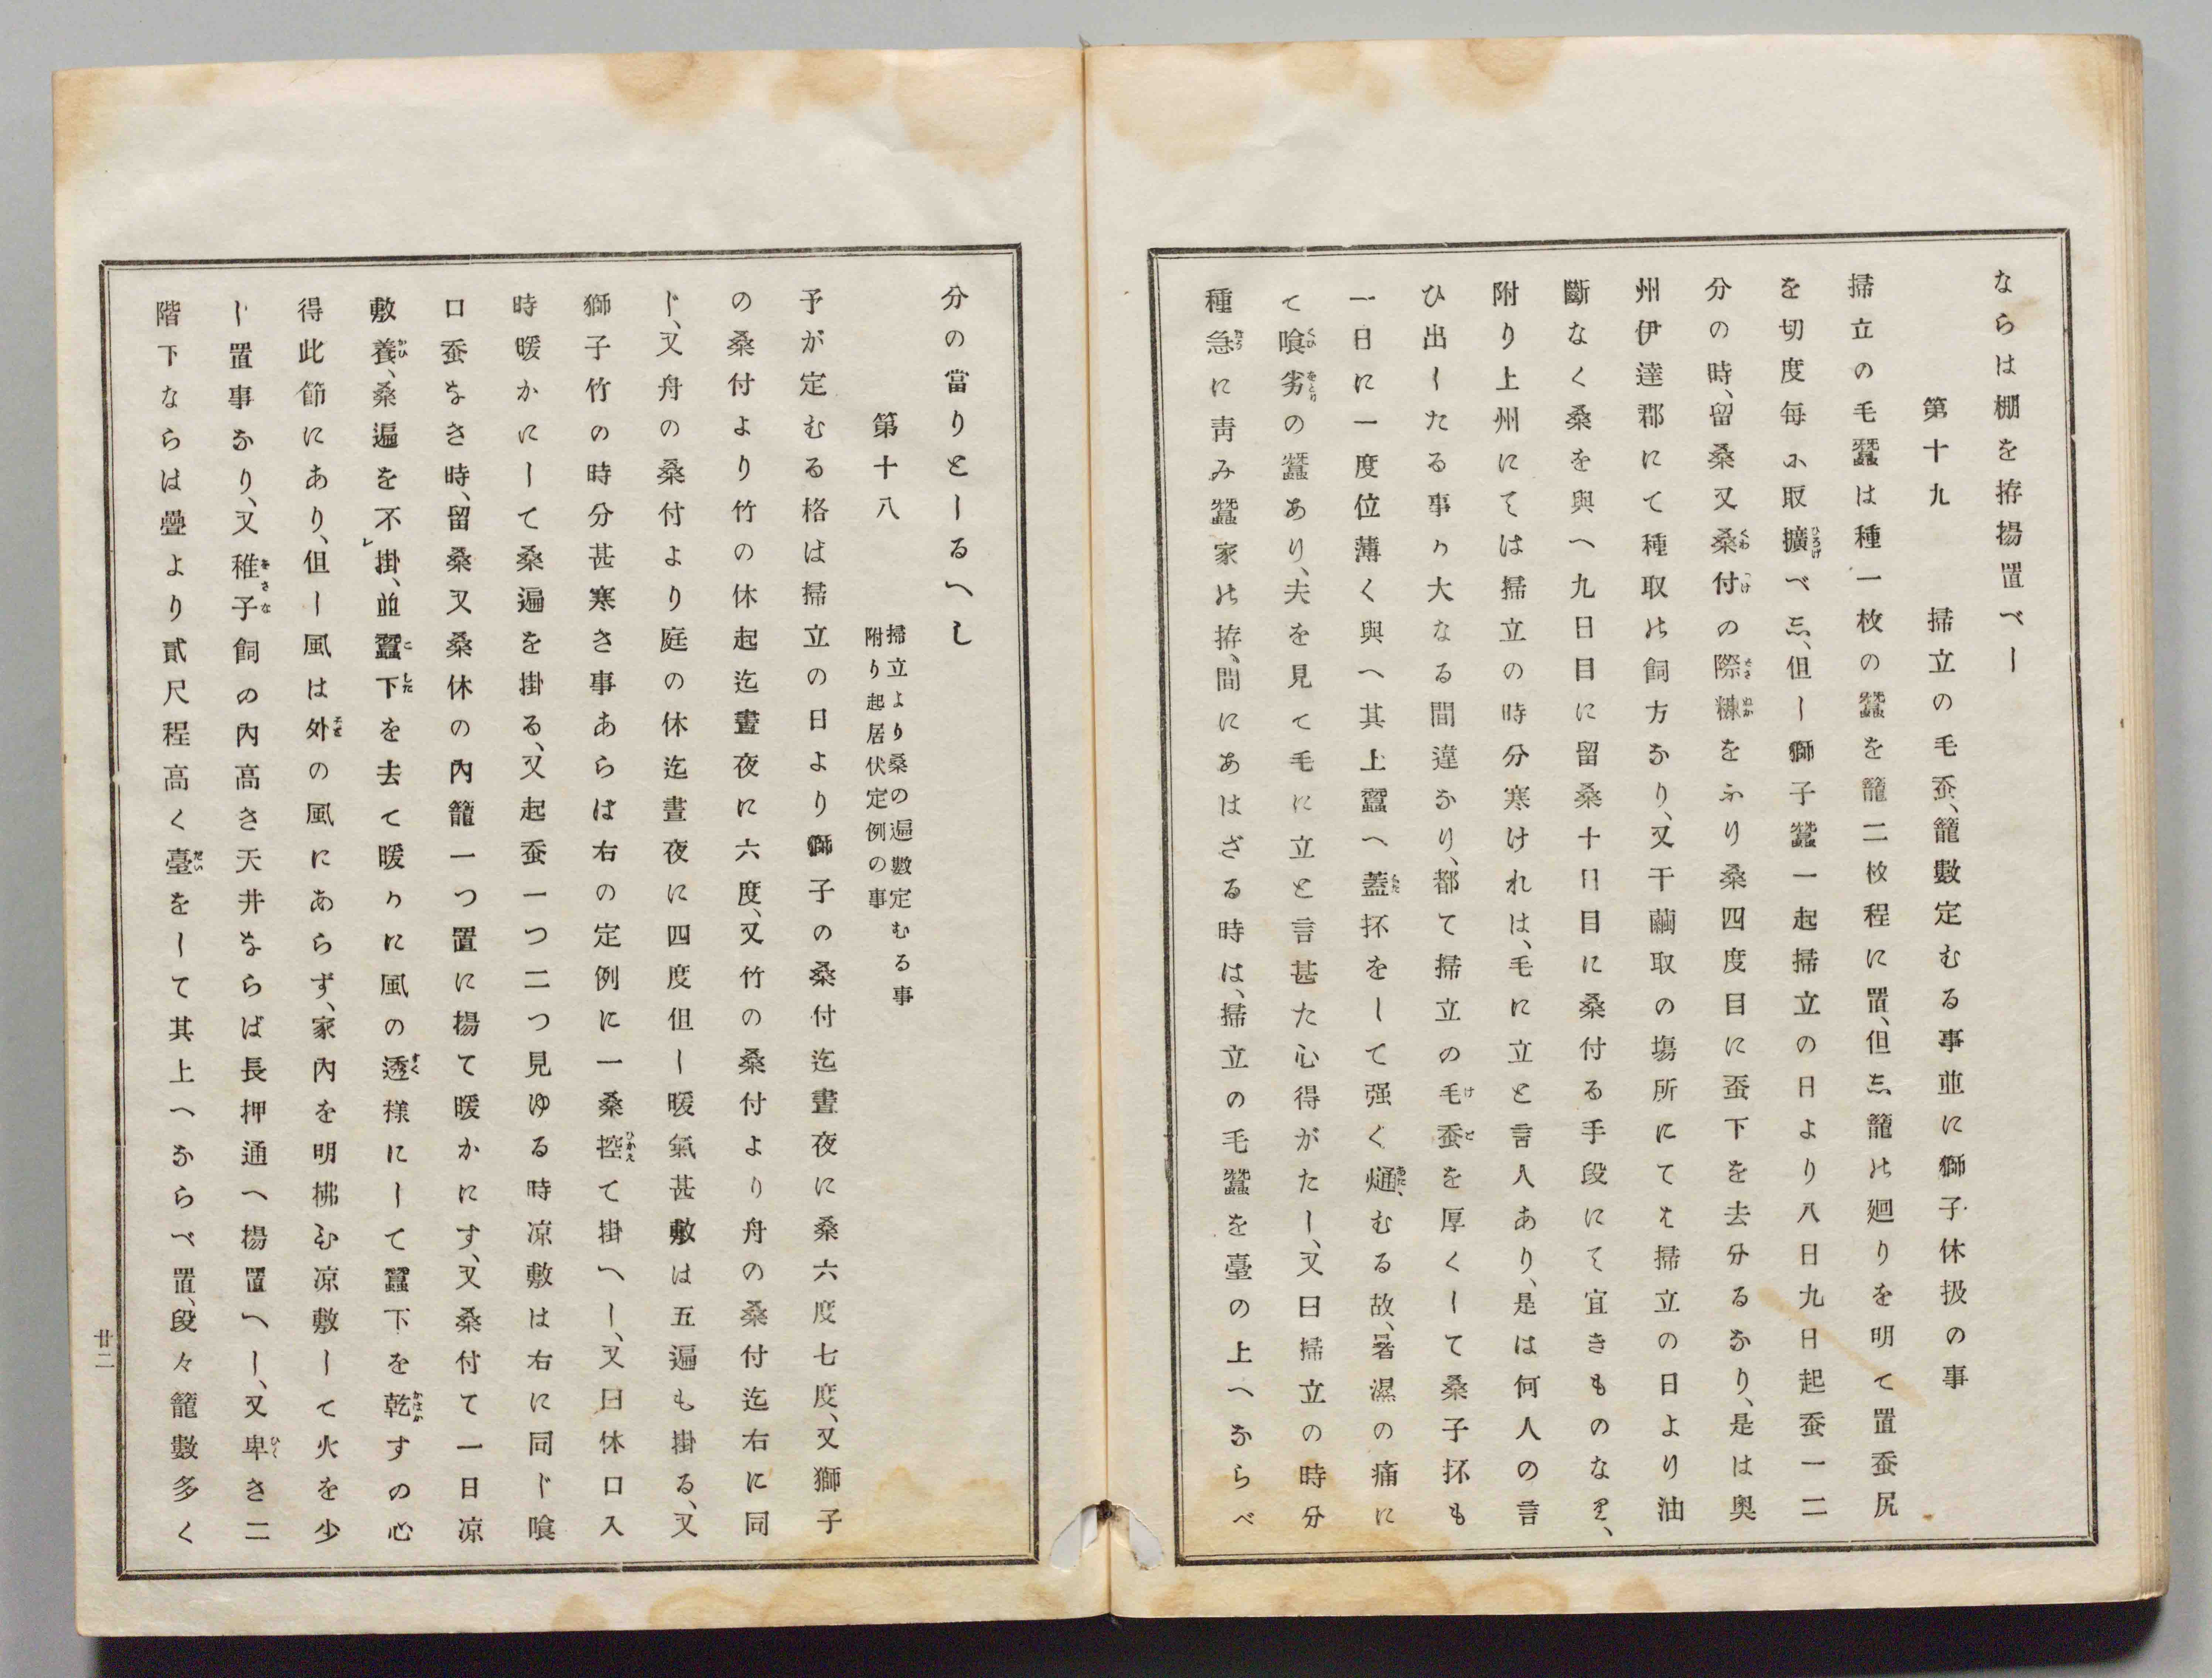 ならは棚を拵揚置べし
第十九　掃立の毛蚕、籠數定むる事並に獅子休扱の事
掃立の毛蠶は種一枚の蠶を籠二枚程に置、但し籠は廻りを明て置蚕尻
を切度毎に取擴べし、但し獅子蠶一起掃立の日より八日九日起蚕一二
分の時、留桑又桑付の際糠をふり桑四度目に蚕下を去分るなり、是は奥
州伊達郡にて種取の飼方なり、又干繭取の塲所にては掃立の日より油
斷なく桑を與へ九日目に留桑十日目に桑付る手段にて宜きものなり、
附り上州にては掃立の時分寒けれは、毛に立と言人あり、是は何人の言
ひ出したる事か大なる間違なり、都て掃立の毛蚕を厚くして桑子抔も
一日に一度位薄く與へ其上蠶へ蓋抔をして强く𤏐むる故、暑濕の痛に
て喰劣の蠶あり、夫を見て毛に立と言甚た心得がたし、又曰掃立の時分
種急に靑み蠶家の拵、間にあはざる時は、掃立の毛蠶を臺の上へならべ
分の當りとしるへし
第十八　掃立より桑の遍數定むる事
附り起居伏定例の事
予が定むる格は掃立の日より獅子の桑付迄晝夜に桑六度七度、又獅子
の桑付より竹の休起迄晝夜に六度、又竹の桑付より舟の桑付迄右に同
じ、又舟の桑付より庭の休迄晝夜に四度但し暖氣甚敷は五遍も掛る、又
獅子竹の時分甚寒き事あらは右の定例に一桑控て掛へし、又曰休口入
時暖かにして桑遍を掛る、又起蚕一つ二つ見ゆる時凉敷は右に同じ喰
口蚕なき時、留桑又桑休の內籠一つ置に揚て暖かにす、又桑付て一日凉
敷養、桑遍を不掛、並蠶下を去て暖かに風の透様にして蠶下を乾すの心
得此節にあり、但し風は外の風にあらず、家內を明拂ひ凉敷して火を少
し置事なり、又稚子飼の內高き天井ならば長押通へ揚置へし、又卑き二
階下ならは疊より貳尺程高く臺をして其上へならべ置、段々籠數多く
廿二